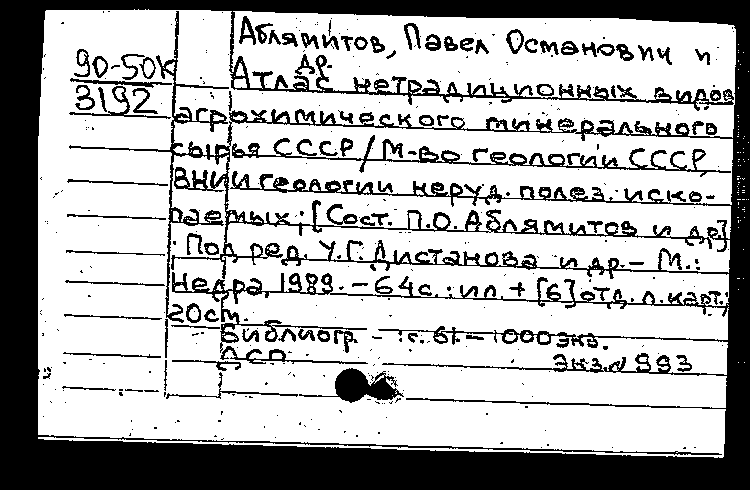 Аблямитов, Павел Османович и
др.
90-50К
3192
Атлас нетрадиционных видов
агрохимического минерального
сырья СССР / М-во геологии СССР,
ВНИИ геологии неруд. полез. иско-
паемых; [Сост. П.О. Аблямитов и др.]
: Под ред. У.Г. Дистанова и др. - М.:
Недра, 1989. - 64с. : ил. + [6] отд. л. карт.;
20см.
Библиогр. - : с. 61. - 1000 экз.
ДСП
Экз. № 993